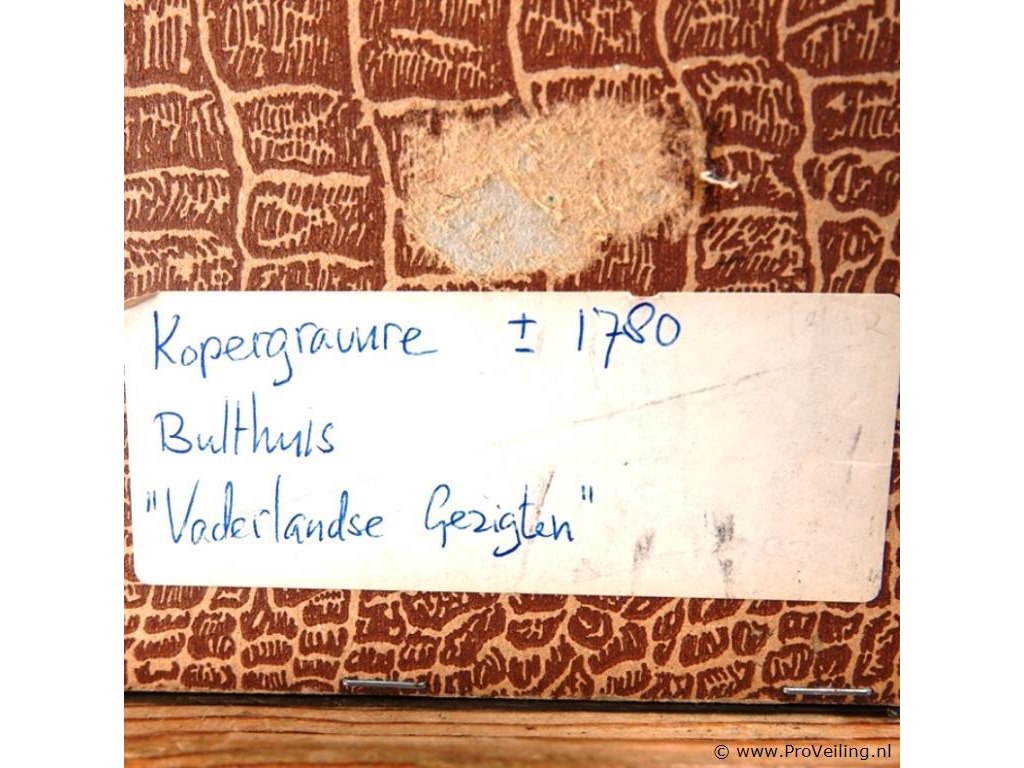 Kopergravure ± 1780
Bulthuis
"Vaderlandse Gezigten"
© www.ProVeiling.nl